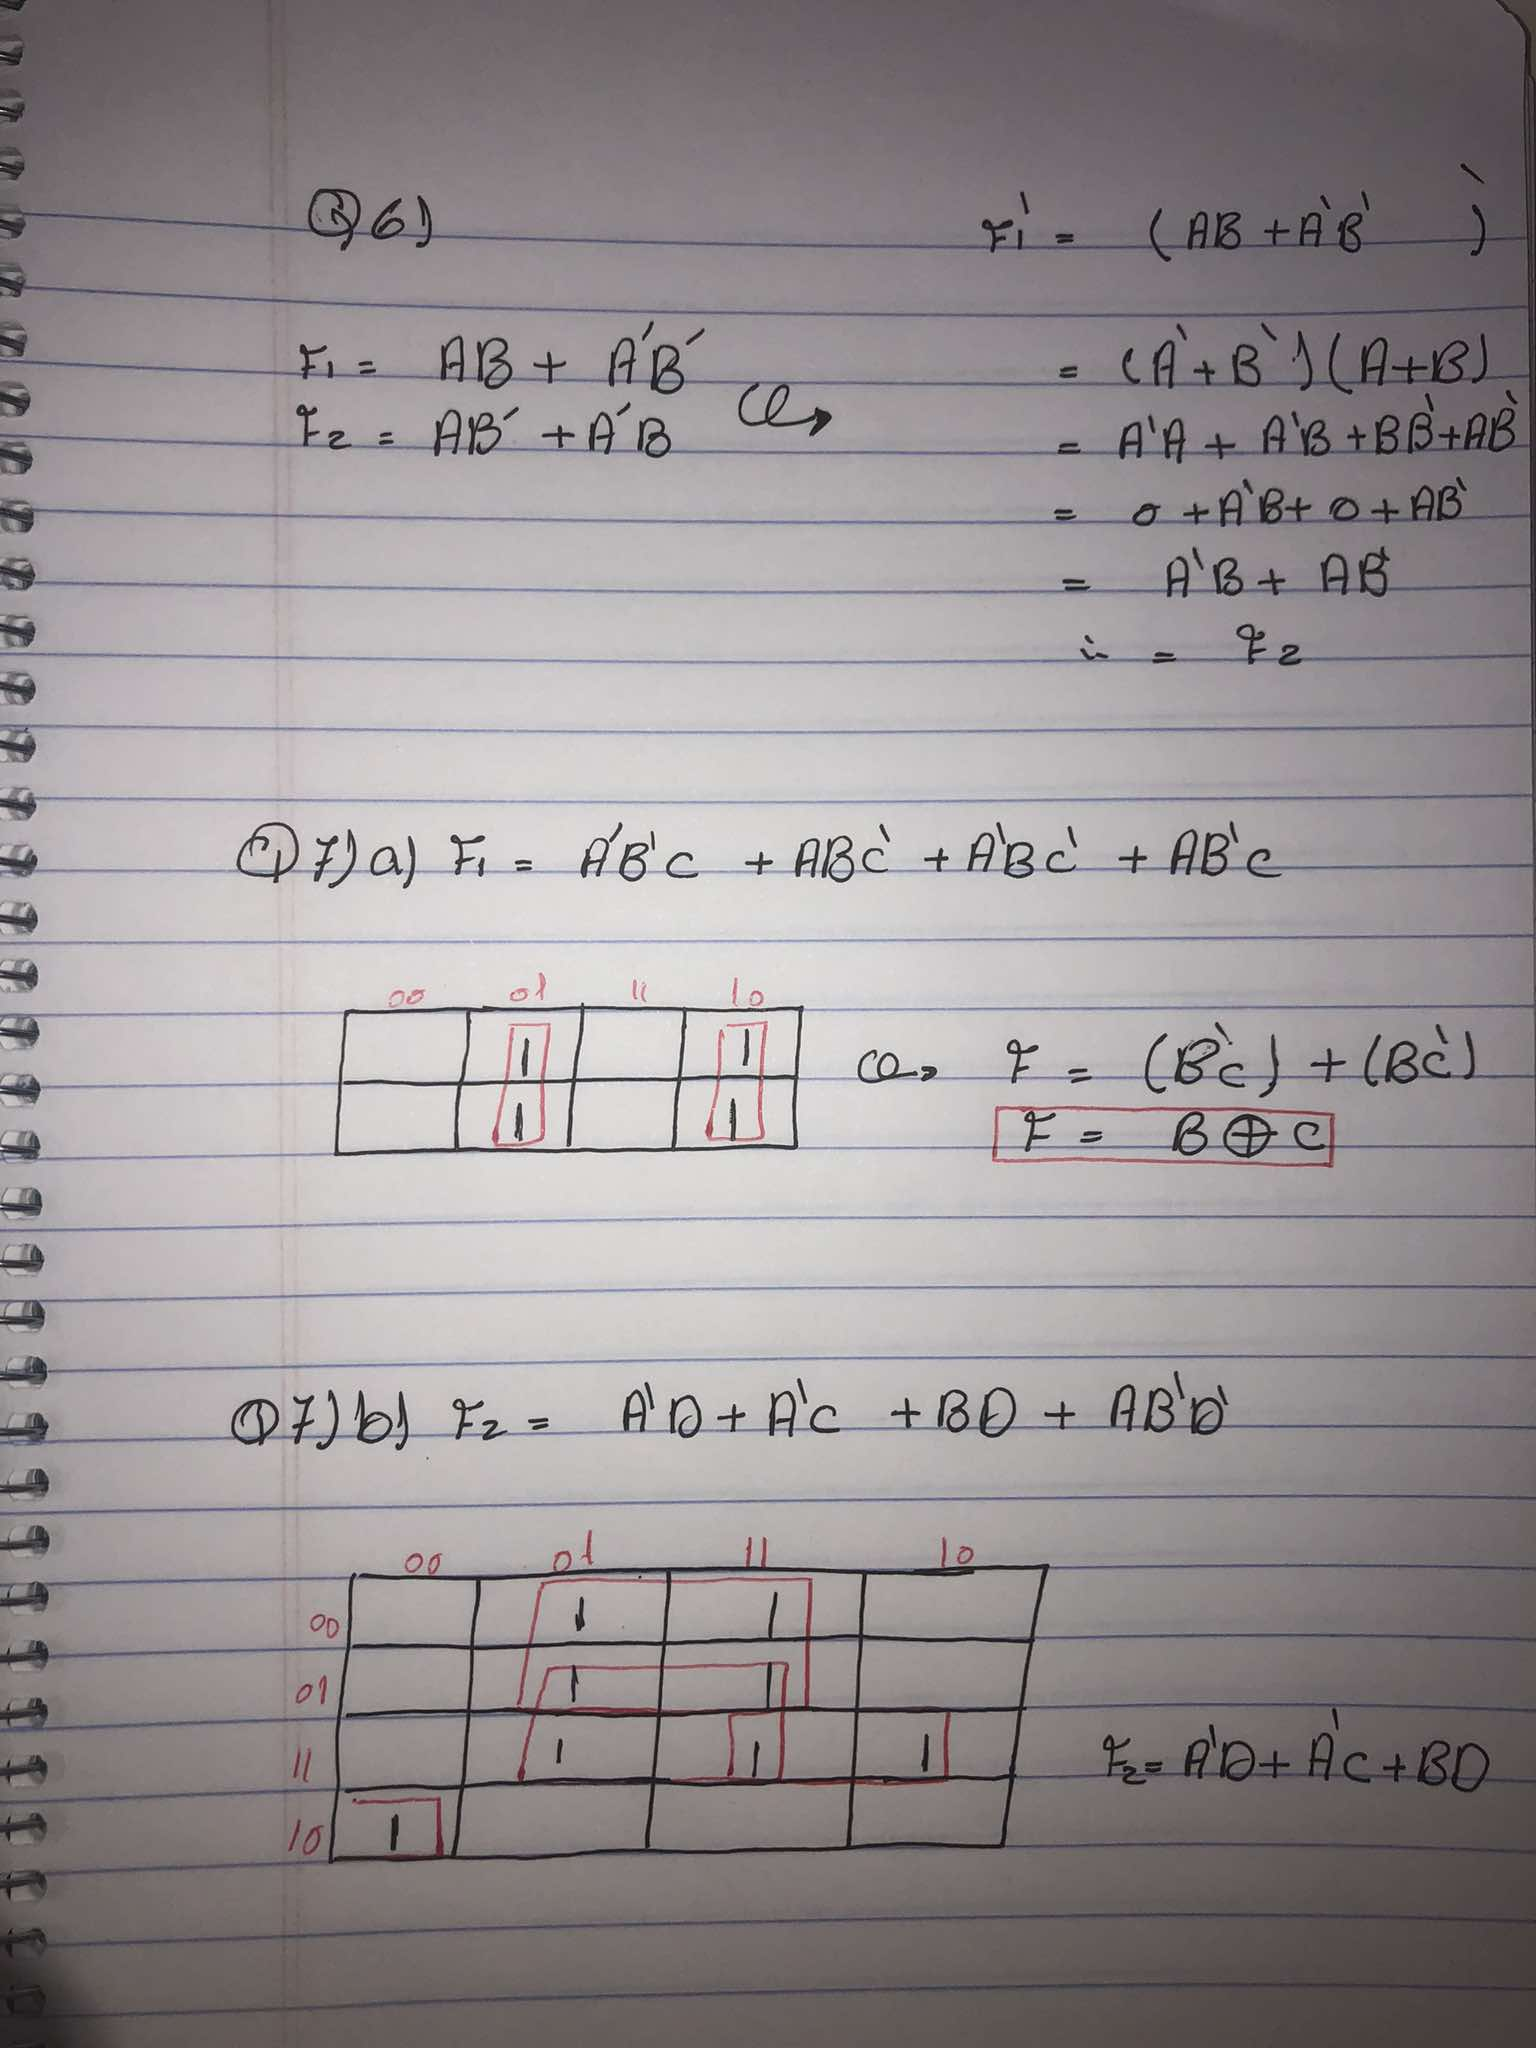 Q6)
F₁ = AB + A'B'
F₂ = AB' + A'B
F₁' = (AB + A'B')'
= (A' + B')(A+B)
= A'A + A'B + BB' + AB'
= 0 + A'B + 0 + AB'
= A'B + AB'
= F₂
Q7)a) F₁ = A'B'C + ABC' + A'BC' + AB'C
00 01 11 10
1 1
1 1
F = (B'C) + (BC')
F = B ⊕ C
Q7)b) F₂ = A'D + A'C + BD + AB'D'
00 01 11 10
00 1 1
01 1 1
11 1 1 1
10 1
F₂ = A'D + A'C + BD